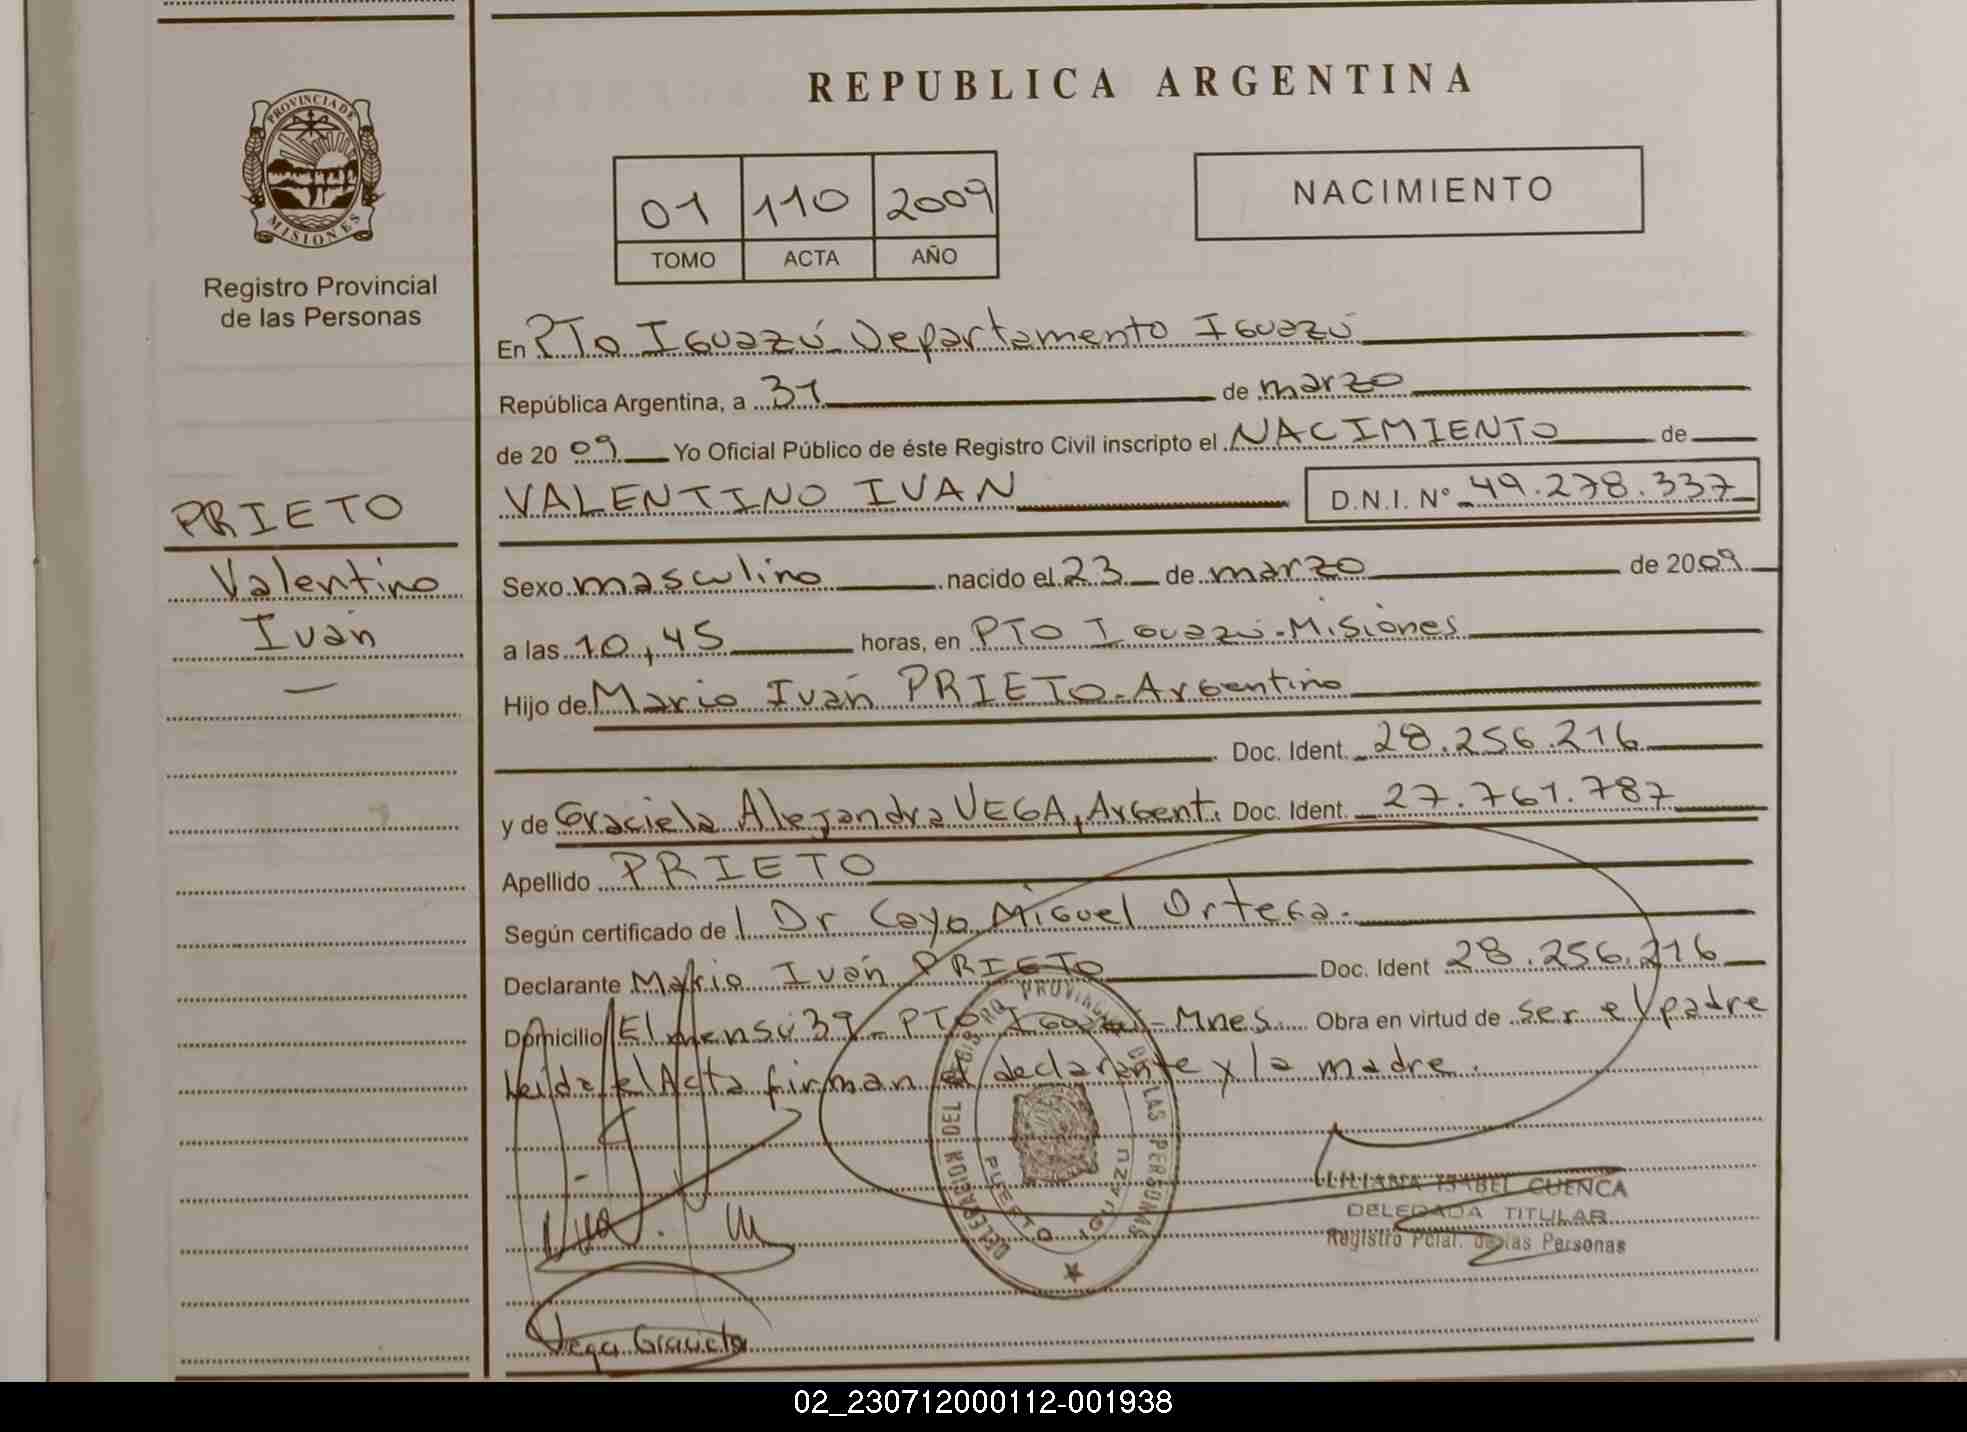 REPUBLICA ARGENTINA
PROVINCIA DE
MISIONES
Registro Provincial
de las Personas
01 110 2009
TOMO ACTA AÑO
NACIMIENTO
En PTO IGUAZÚ Departamento IGUAZÚ
República Argentina, a 31 de marzo
de 20 09 Yo Oficial Público de éste Registro Civil inscripto el NACIMIENTO de
VALENTINO IVAN D.N.I. N° 49.278.337
PRIETO
Valentino
Iván
Sexo masculino nacido el 23 de marzo de 2009
a las 10,45 horas, en PTO IGUAZÚ-Misiones
Hijo de Mario Iván PRIETO-Argentino
Doc. Ident. 28.256.216
y de Graciela Alejandra VEGA, Argent. Doc. Ident. 27.761.787
Apellido PRIETO
Según certificado de Dr Cayo Miguel Ortega.
Declarante Mario Iván PRIETO Doc. Ident 28.256.216
Domicilio El mensú 39-PTO Iguazú-Mnes. Obra en virtud de ser el padre
Leída el Acta firman el declarante y la madre.
DELEGACION DEL REGISTRO PROVINCIAL DE LAS PERSONAS
PUERTO IGUAZU
LILIANA ISABEL CUENCA
DELEGADA TITULAR
Registro Pcial. de las Personas
Vega Graciela
02_230712000112-001938